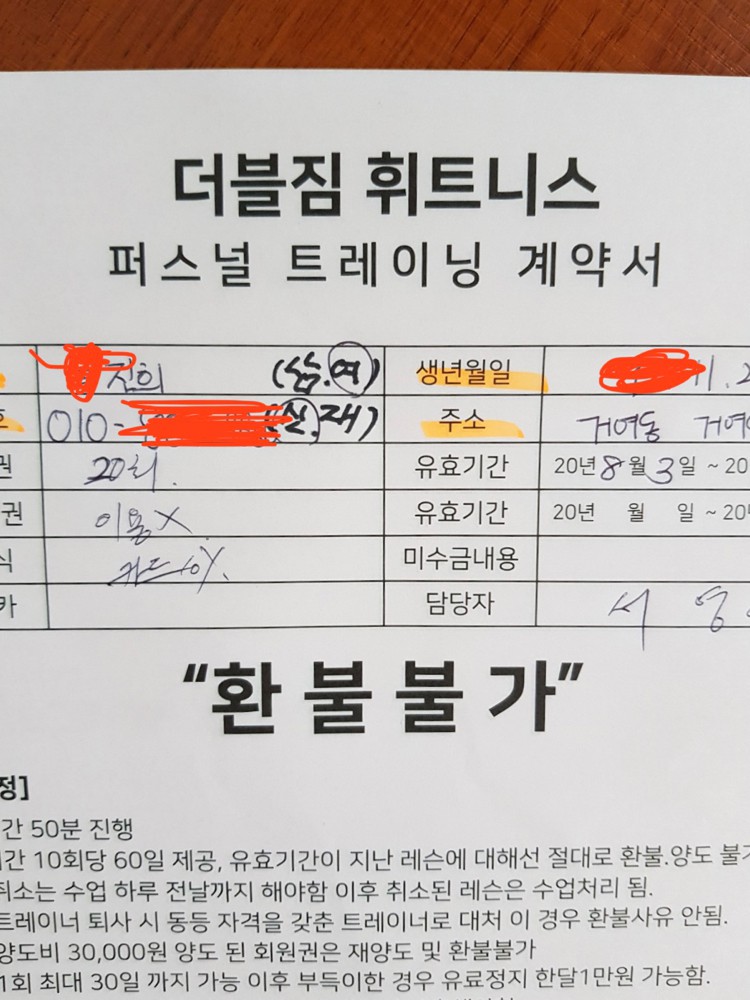 더블짐 휘트니스
퍼스널 트레이닝 계약서
진희 (남.여) 생년월일 11.2
호 010- (신.재) 주소 거여동 거여
권 20회. 유효기간 20년 8월 3일 ~ 20
권 이용X 유효기간 20년 월 일 ~ 20
식 카드 미수금내용
카 담당자 서 영
“환 불 불 가”
정]
간 50분 진행
간 10회당 60일 제공, 유효기간이 지난 레슨에 대해선 절대로 환불.양도 불가
취소는 수업 하루 전날까지 해야함 이후 취소된 레슨은 수업처리 됨.
트레이너 퇴사 시 동등 자격을 갖춘 트레이너로 대처 이 경우 환불사유 안됨.
양도비 30,000원 양도 된 회원권은 재양도 및 환불불가
1회 최대 30일 까지 가능 이후 부득이한 경우 유료정지 한달1만원 가능함.